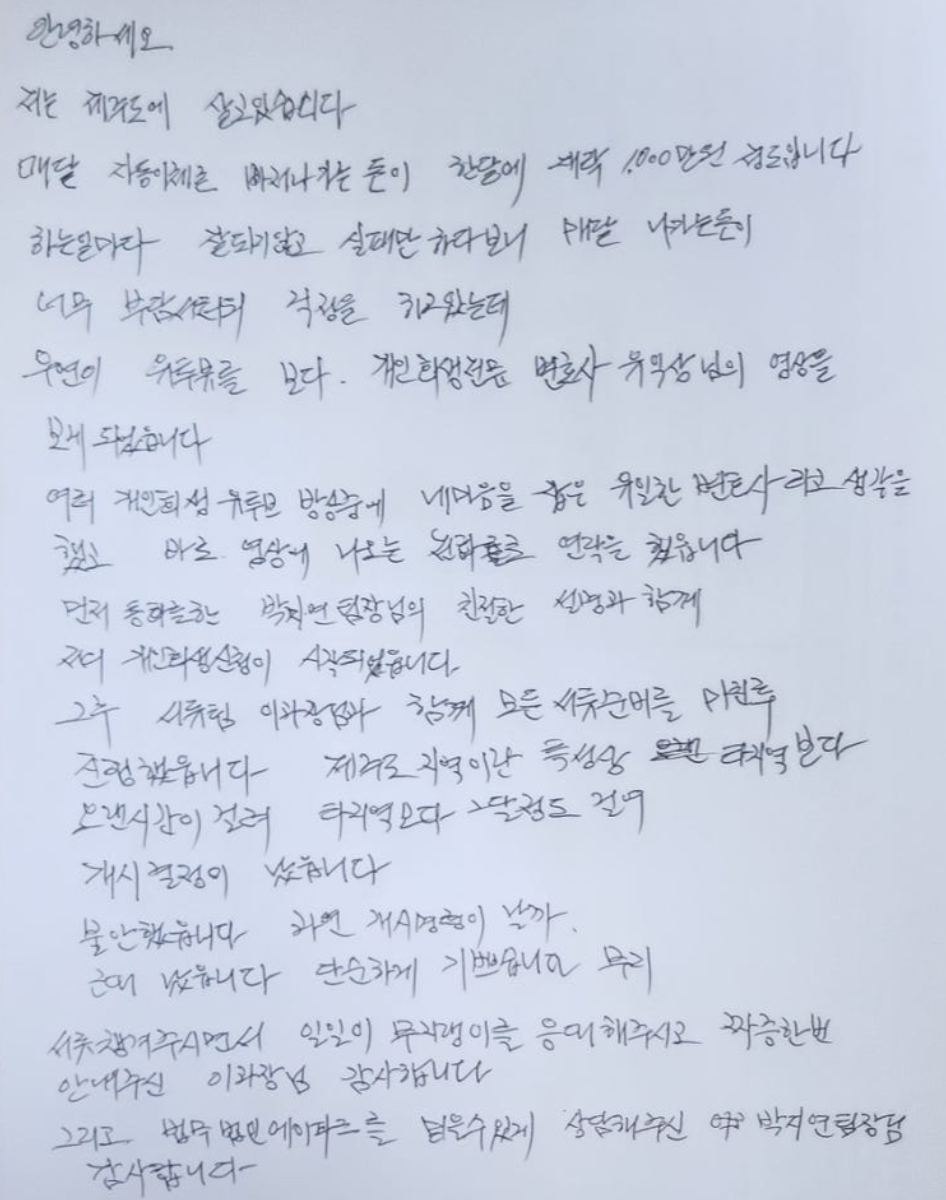 안녕하세요
저는 제주도에 살고있습니다
매달 자동이체로 빠져나가는 돈이 한달에 대략 1,000만원 정도입니다
하는일마다 잘되지않고 실패만 하다보니 매달 나가는돈이
너무 부담스러워 걱정을 하고왔는데
우연이 유투브를 보다. 개인회생전문 변호사 유익상님의 영상을
보게 되었습니다
여러 개인회생 유투브 방송중에 내마음을 잡은 유일한 변호사라고 생각을
했고 바로 영상에 나오는 전화로 연락을 했읍니다
먼저 통화를한 박지연팀장님의 친절한 설명과 함께
저의 개인회생신청이 시작되었읍니다.
그후 서류팀 이과장님과 함께 모든서류준비를 마친후
진행했읍니다 제주도지역이란 특성상 타지역보다
오랜시간이 걸려 타지역보다 2달정도 걸려
개시결정이 났습니다
불안했읍니다 과연 개시명령이 날까.
근데 났읍니다 단순하게 기쁘읍니다
서류챙겨주시면서 일일이 무지랭이를 응대해주시고 짜증한번
안내주신 이과장님 감사합니다
그리고 법무법인에이파트를 믿을수있게 상담해주신 박지연팀장님
감사합니다